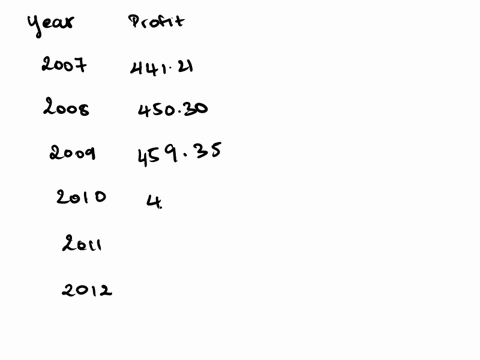 Year Profit
2007 441.21
2008 450.30
2009 459.35
2010 4
2011
2012